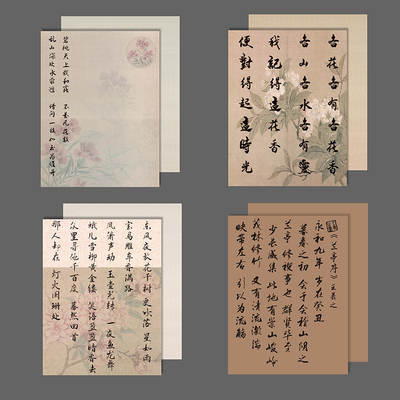 碧桃天上栽和露 不是凡花数
乱山深处水萦洄
各花各有各花香
各山各水各有靈
我記得這花香
便對得起這時光
东风夜放花千树 更吹落 星如雨
宝马雕车香满路
凤箫声动 玉壶光转 一夜鱼龙舞
蛾儿雪柳黄金缕 笑语盈盈暗香去
众里寻他千百度 蓦然回首
那人却在 灯火阑珊处
《兰亭序》王羲之
永和九年 岁在癸丑
暮春之初 会于会稽山阴之
兰亭 修禊事也 群贤毕至
少长咸集 此地有崇山峻岭
茂林修竹 又有清流激湍
映带左右 引以为流觞